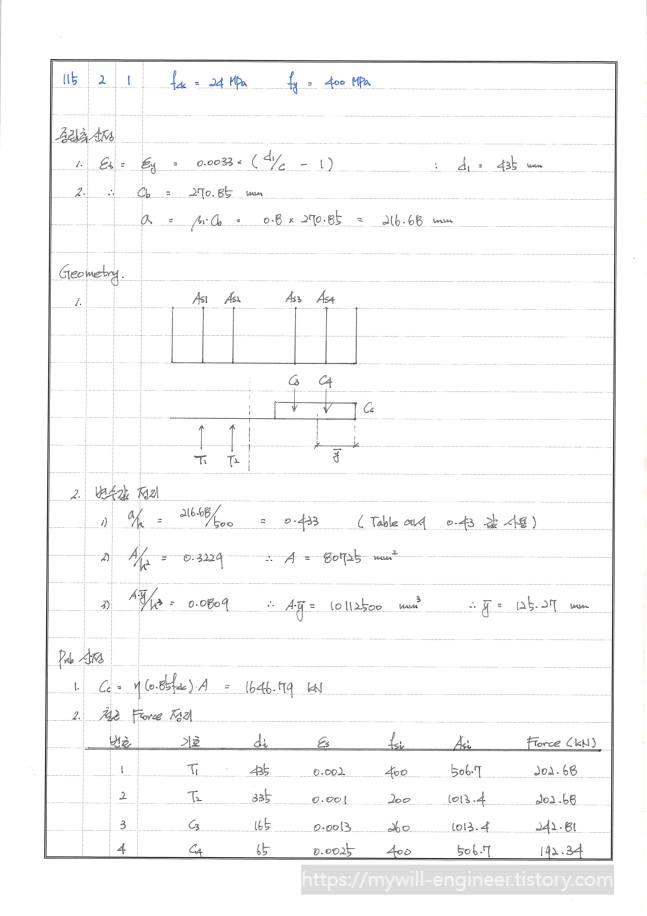 115 2 1 fck = 24 MPa fy = 400 MPa
중립축 산정
1. εt = εy = 0.0033 × ( d1/c - 1 ) : d1 = 435 mm
2. ∴ Cb = 270.85 mm
a = β1·Cb = 0.8 × 270.85 = 216.68 mm
Geometry.
1.
As1 As2 As3 As4
C3 C4
Cc
T1 T2 ȳ
2. 변수값 정리
1) a/h = 216.68/500 = 0.433 ( Table 에서 0.43 값 사용 )
2) A/h² = 0.3229 ∴ A = 80725 mm²
3) A·ȳ/h³ = 0.0809 ∴ A·ȳ = 10112500 mm³ ∴ ȳ = 125.27 mm
Pnb 산정
1. Cc = η(0.85fck)·A = 1646.79 kN
2. 철근 Force 정리
번호 기호 di εs fsi Asi Force (kN)
1 T1 435 0.002 400 506.7 202.68
2 T2 335 0.001 200 1013.4 202.68
3 C3 165 0.0013 260 1013.4 241.81
4 C4 65 0.0025 400 506.7 192.34
https://mywill-engineer.tistory.com